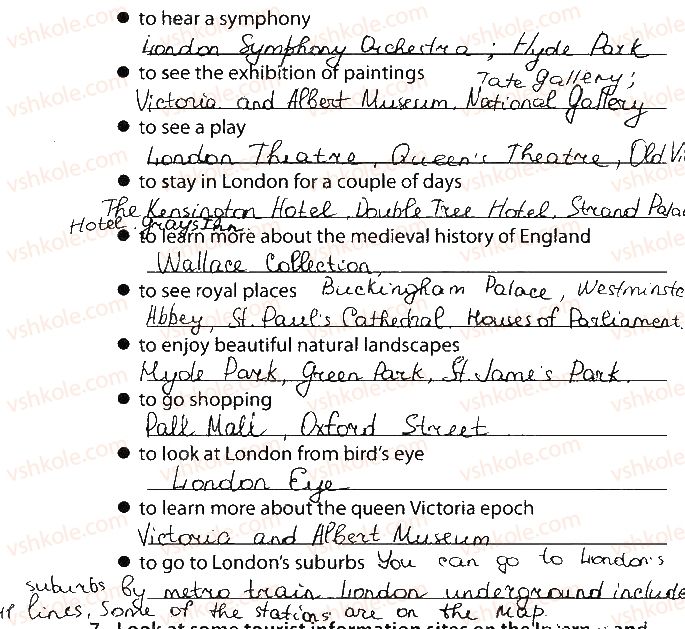 • to hear a symphony
London Symphony Orchestra ; Hyde Park
• to see the exhibition of paintings Tate gallery;
Victoria and Albert Museum, National Gallery
• to see a play
London Theatre, Queen's Theatre, Old Vi
• to stay in London for a couple of days
The Kensington Hotel, Double Tree Hotel, Strand Palac
Hotel, Grays Inn.
• to learn more about the medieval history of England
Wallace Collection,
• to see royal places Buckingham Palace, Westminste
Abbey, St. Paul's Cathedral, Houses of Parliament.
• to enjoy beautiful natural landscapes
Hyde Park, Green Park, St. Jame's Park.
• to go shopping
Pall Mall, Oxford Street
• to look at London from bird's eye
London Eye
• to learn more about the queen Victoria epoch
Victoria and Albert Museum
• to go to London's suburbs You can go to London's
suburbs by metro train London underground include
lines. Some of the stations are on the map.
7. Look at some tourist information sites on the